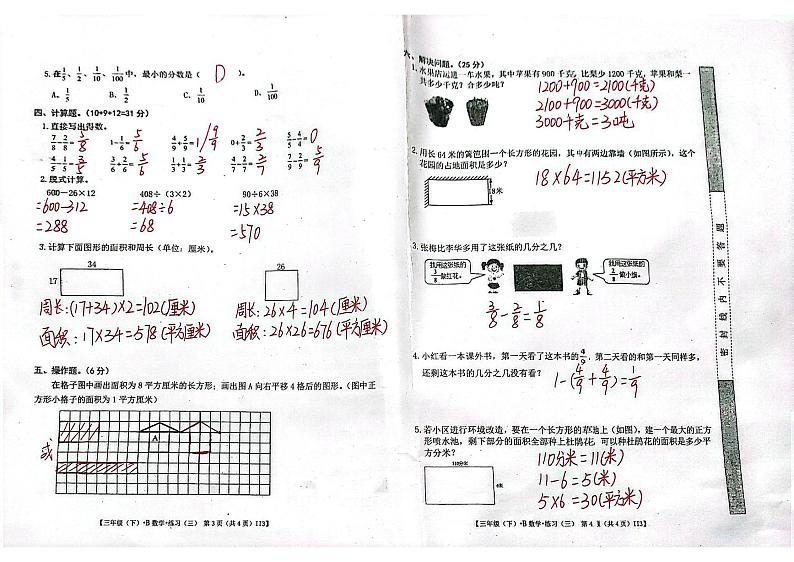 5. 在1/5、1/2、1/10、1/100中，最小的分数是（ D ）。
A. 1/5 B. 1/2 C. 1/10 D. 1/100
四、计算题。(10+9+12=31 分)
1. 直接写出得数。
7/8-2/8=5/8 1-1/6=5/6 4/9+5/9=1/9/9 0+2/3=2/3 5/5-4/4=0
4/5-1/5=3/5 3/6+2/6=5/6 1/3+1/3=2/3 4/7-2/7=2/7 7/9-2/9=5/9
2. 脱式计算。
600－26×12 408÷（3×2） 90÷6×38
=600-312 =408÷6 =15×38
=288 =68 =570
3. 计算下面图形的面积和周长（单位：厘米）。
34
17
26
周长:(17+34)×2=102(厘米) 周长:26×4=104(厘米)
面积:17×34=578(平方厘米) 面积:26×26=676(平方厘米)
五、操作题。(6 分)
在格子图中画出面积为 8 平方厘米的长方形；画出图 A 向右平移 4 格后的图形。（图中正
方形小格子的面积为 1 平方厘米）
A
或
【三年级（下）·B 数学·练习（三） 第 3 页（共 4 页）113】
六、解决问题。(25 分)
1. 水果店运进一车水果，其中苹果有 900 千克，比梨少 1200 千克，苹果和梨一
共多少千克？合多少吨？
1200+900=2100(千克)
2100+900=3000(千克)
3000千克=30吨
2. 用长 64 米的篱笆围一个长方形的花园，其中有两边靠墙（如图所示），这个
花园的占地面积是多少？
18米
18×64=1152(平方米)
3. 张梅比李华多用了这张纸的几分之几？
我用这张纸的3/8做红花。
我用这张纸的2/8做小旗。
3/8-2/8=1/8
4. 小红看一本课外书，第一天看了这本书的4/9，第二天看的和第一天同样多，
还剩这本书的几分之几没有看？
1-(4/9+4/9)=1/9
5. 若小区进行环境改造，要在一个长方形的草地上（如图），建一个最大的正方
形喷水池，剩下部分的面积全部种上杜鹃花，可以种杜鹃花的面积是多少平
方分米？
110分米
6米
110分米=11(米)
11-6=5(米)
5×6=30(平方米)
【三年级（下）·B 数学·练习（三） 第 4 页（共 4 页）113】
密封线内不要答题